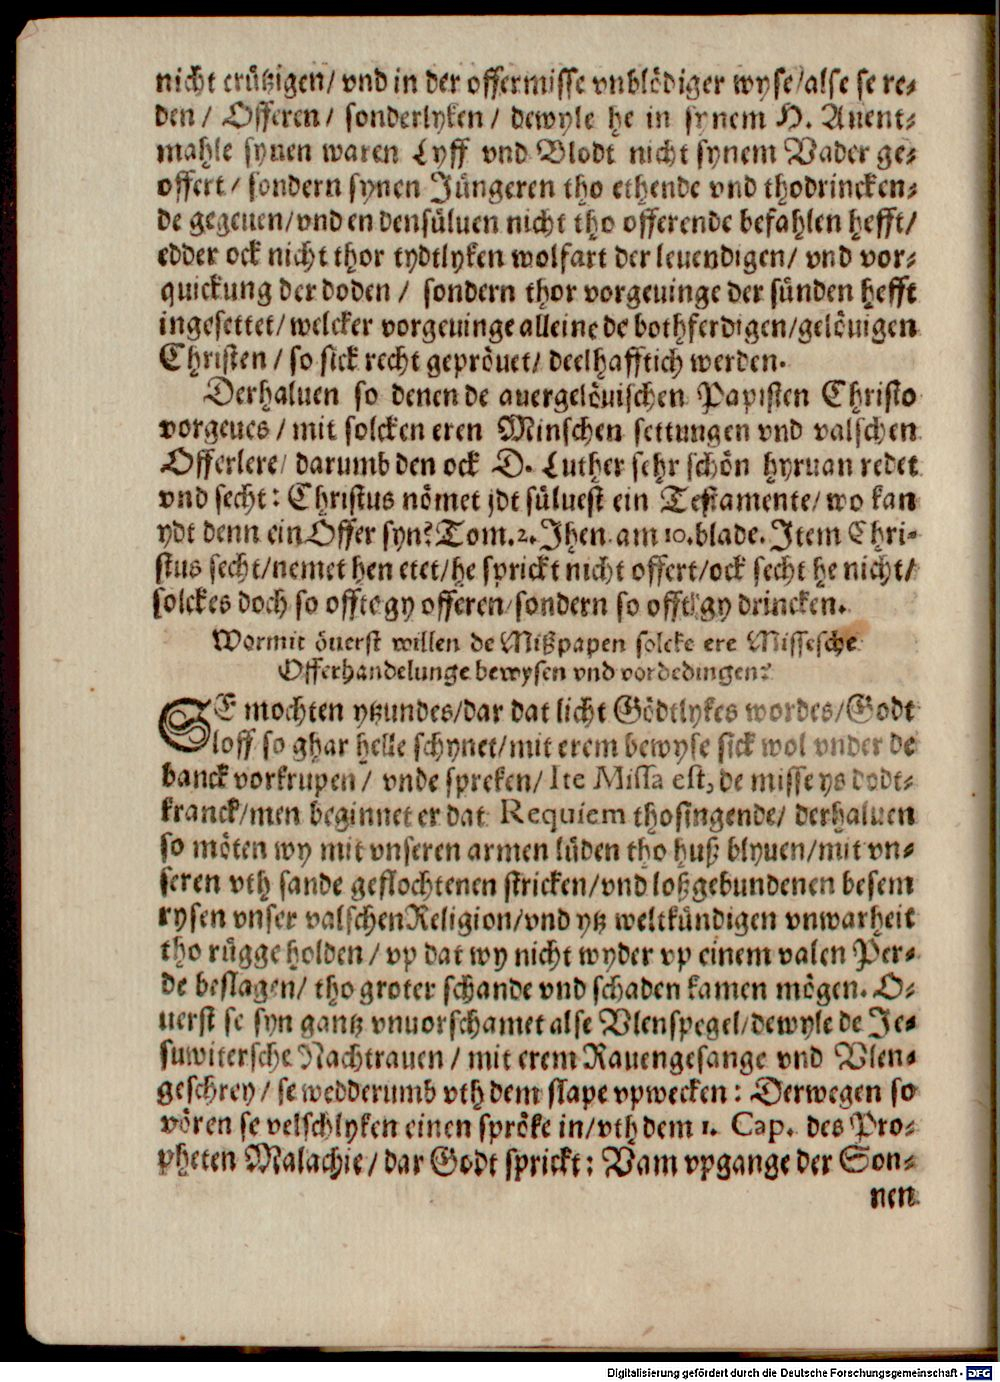 nicht crützigen/ vnd in der offermisse vnblödiger wyse/alse se re-
den/ Offeren/ sonderlyken/ dewyle he in synem H. Auent-
mahle synen waren Lyff vnd Blodt nicht synem Vader ge-
offert/ sondern synen Jüngeren tho ethende vnd thodrincken-
de gegeuen/vnd en densüluen nicht tho offerende befahlen hefft/
edder ock nicht thor tydtlyken wolfart der leuendigen/ vnd vor-
quickung der doden/ sondern thor vorgeuinge der sünden hefft
ingesettet/welcker vorgeuinge alleine de bothferdigen/gelöuigen
Christen/ so sick recht gepröuet/ deelhafftich werden.
Derhaluen so denen de auergelöuischen Papisten Christo
vorgeues/ mit solcken eren Minschen settungen vnd valschen
Offerlere/ darumb den ock D. Luther sehr schön hyruan redet
vnd secht: Christus nömet jdt süluest ein Testamente/ wo kan
ydt denn ein Offer syn? Tom. 2. Jhen. am 10. blade. Item Chri-
stus secht/nemet hen etet/he sprickt nicht offert/ock secht he nicht/
solckes doch so offte gy offeren/sondern so offte gy drincken.
Wormit öuerst willen de Mißpapen solcke ere Missesche
Offerhandelunge bewysen vnd vordedingen?
SE mochten ytzundes/dar dat licht Gödtlykes wordes/Godt
loff so ghar helle schynet/mit erem bewyse sick wol vnder de
banck vorkrupen/ vnde spreken/ Ite Missa est, de misse ys dodt-
kranck/men beginnet er dat Requiem thosingende/ derhaluen
so möten wy mit vnseren armen lüden tho huß blyuen/mit vn-
seren vth sande geflochtenen stricken/vnd loßgebundenen besem
rysen vnser valschen Religion/vnd ytz weltkündigen vnwarheit
tho rügge holden/ vp dat wy nicht wyder vp einem valen Per-
de beslagen/ tho groter schande vnd schaden kamen mögen. O-
uerst se syn gantz vnuorschamet alse Vlenspegel/dewyle de Je-
suwitersche Nachtrauen/ mit erem Rauengesange vnd Vlen-
geschrey/ se wedderumb vth dem slape vpwecken: Derwegen so
vören se velschlyken einen spröke in/vth dem 1. Cap. des Pro-
pheten Malachie/ dar Godt sprickt: Vam vpgange der Son-
nen
Digitalisierung gefördert durch die Deutsche Forschungsgemeinschaft - DFG